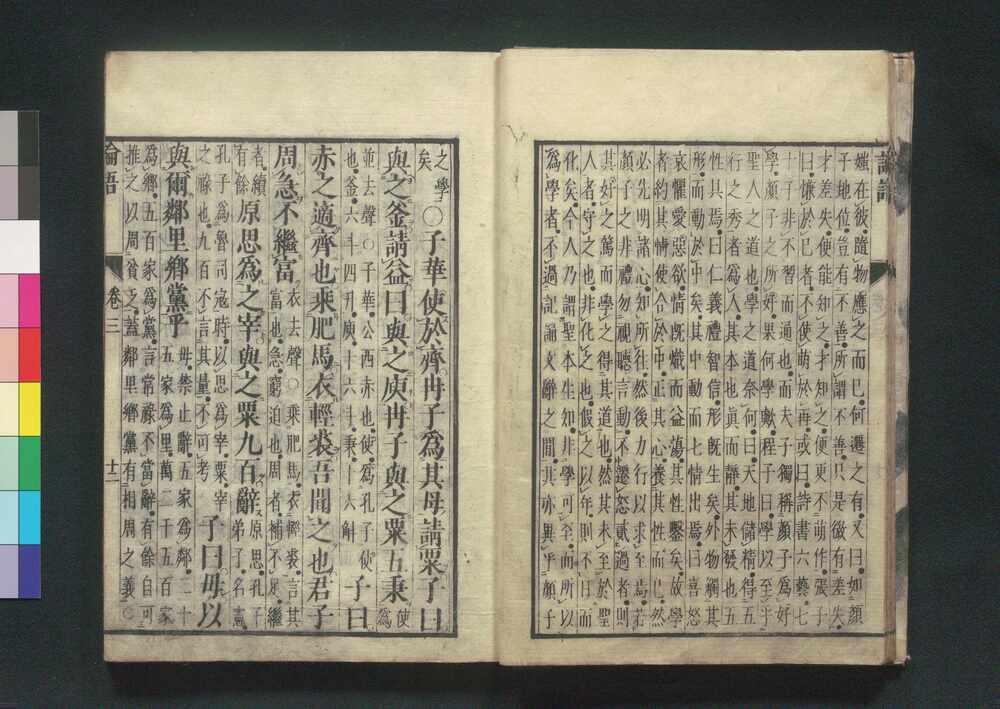 論語
媸在彼隨物應之而已何遷之有又曰如顏
子地位豈有不善所謂不善只是微有差失
才差失便能知之才知之便更不萌作張子
曰慊於己者不使萌於再或曰詩書六藝七
十子非不習而通也而夫子獨稱顏子爲好
學顏子之所好果何學歟程子曰學以至乎
聖人之道也學之道奈何曰天地儲精得五
行之秀者爲人其本也眞而靜其未發也五
性具焉曰仁義禮智信形旣生矣外物觸其
形而動於中矣其中動而七情出焉曰喜怒
哀懼愛惡欲情旣熾而益蕩其性鑿矣故學
者約其情使合於中正其心養其性而已然
必先明諸心知所往然後力行以求至焉若
顏子之非禮勿視聽言動不遷怒貳過者則
其好之篤而學之得其道也然其未至於聖
人者守之也非化之也假之以年則不日而
化矣今人乃謂聖本生知非學可至而所以
爲學者不過記誦文辭之間其亦異乎顏子
之學
矣
○子華使於齊冉子爲其母請粟子曰
與之釜請益曰與之庾冉子與之粟五秉
使爲
並去聲○子華公西赤也使爲孔子使
也釜六斗四升庾十六斗秉十六斛
子曰
赤之適齊也乘肥馬衣輕裘吾聞之也君子
周急不繼富
衣去聲○乘肥馬衣輕裘言其
富也急窮迫也周者補不足繼
者續
有餘
原思爲之宰與之粟九百辭
原思孔子
弟子名憲
孔子爲魯司寇時以思爲宰粟宰
之祿也九百不言其量不可考
子曰毋以
與爾鄰里鄉黨乎
毋禁止辭五家爲鄰二十
五家爲里萬二千五百家
爲鄉五百家爲黨言常祿不當辭有餘自可
推之以周貧乏蓋鄰里鄉黨有相周之義○
論語
卷三
十二